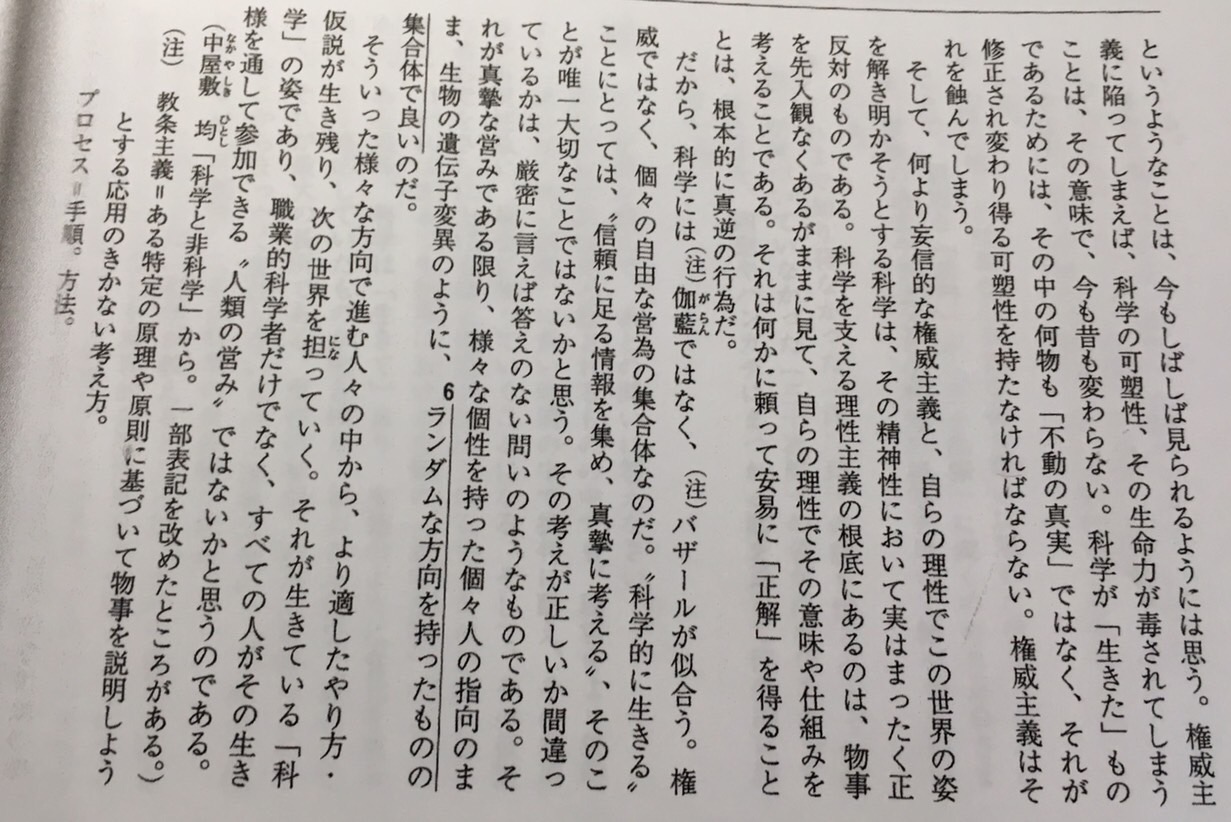 というようなことは、今もしばしば見られるようには思う。権威主
義に陥ってしまえば、科学の可塑性、その生命力が毒されてしまう
ことは、その意味で、今も昔も変わらない。科学が「生きた」もの
であるためには、その中の何物も「不動の真実」ではなく、それが
修正され変わり得る可塑性を持たなければならない。権威主義はそ
れを蝕んでしまう。
そして、何より妄信的な権威主義と、自らの理性でこの世界の姿
を解き明かそうとする科学は、その精神性において実はまったく正
反対のものである。科学を支える理性主義の根底にあるのは、物事
を先入観なくあるがままに見て、自らの理性でその意味や仕組みを
考えることである。それは何かに頼って安易に「正解」を得ること
とは、根本的に真逆の行為だ。
だから、科学には(注)伽藍がらんではなく、(注)バザールが似合う。権
威ではなく、個々の自由な営為の集合体なのだ。〝科学的に生きる〟
ことにとっては、〝信頼に足る情報を集め、真摯に考える〟、そのこ
とが唯一大切なことではないかと思う。その考えが正しいか間違っ
ているかは、厳密に言えば答えのない問いのようなものである。そ
れが真摯な営みである限り、様々な個性を持った個々人の指向のま
ま、生物の遺伝子変異のように、6ランダムな方向を持ったものの
集合体で良いのだ。
そういった様々な方向で進む人々の中から、より適したやり方・
仮説が生き残り、次の世界を担になっていく。それが生きている「科
学」の姿であり、職業的科学者だけでなく、すべての人がその生き
様を通して参加できる〝人類の営み〟ではないかと思うのである。
(中屋敷なかやしき 均ひとし「科学と非科学」から。一部表記を改めたところがある。)
(注) 教条主義＝ある特定の原理や原則に基づいて物事を説明しよう
とする応用のきかない考え方。
プロセス＝手順。方法。